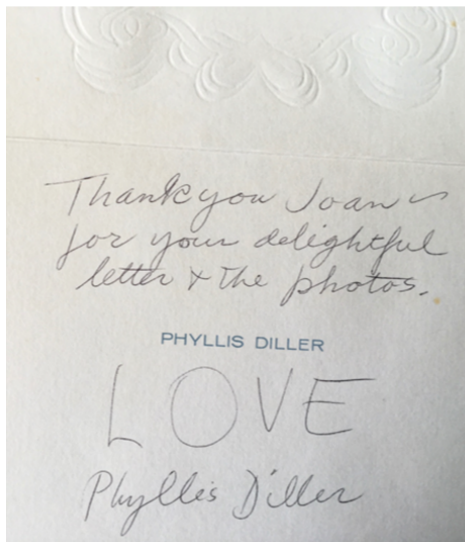 Thank you Joan ~
for your delightful
letter & the photos.
PHYLLIS DILLER
LOVE
Phyllis Diller